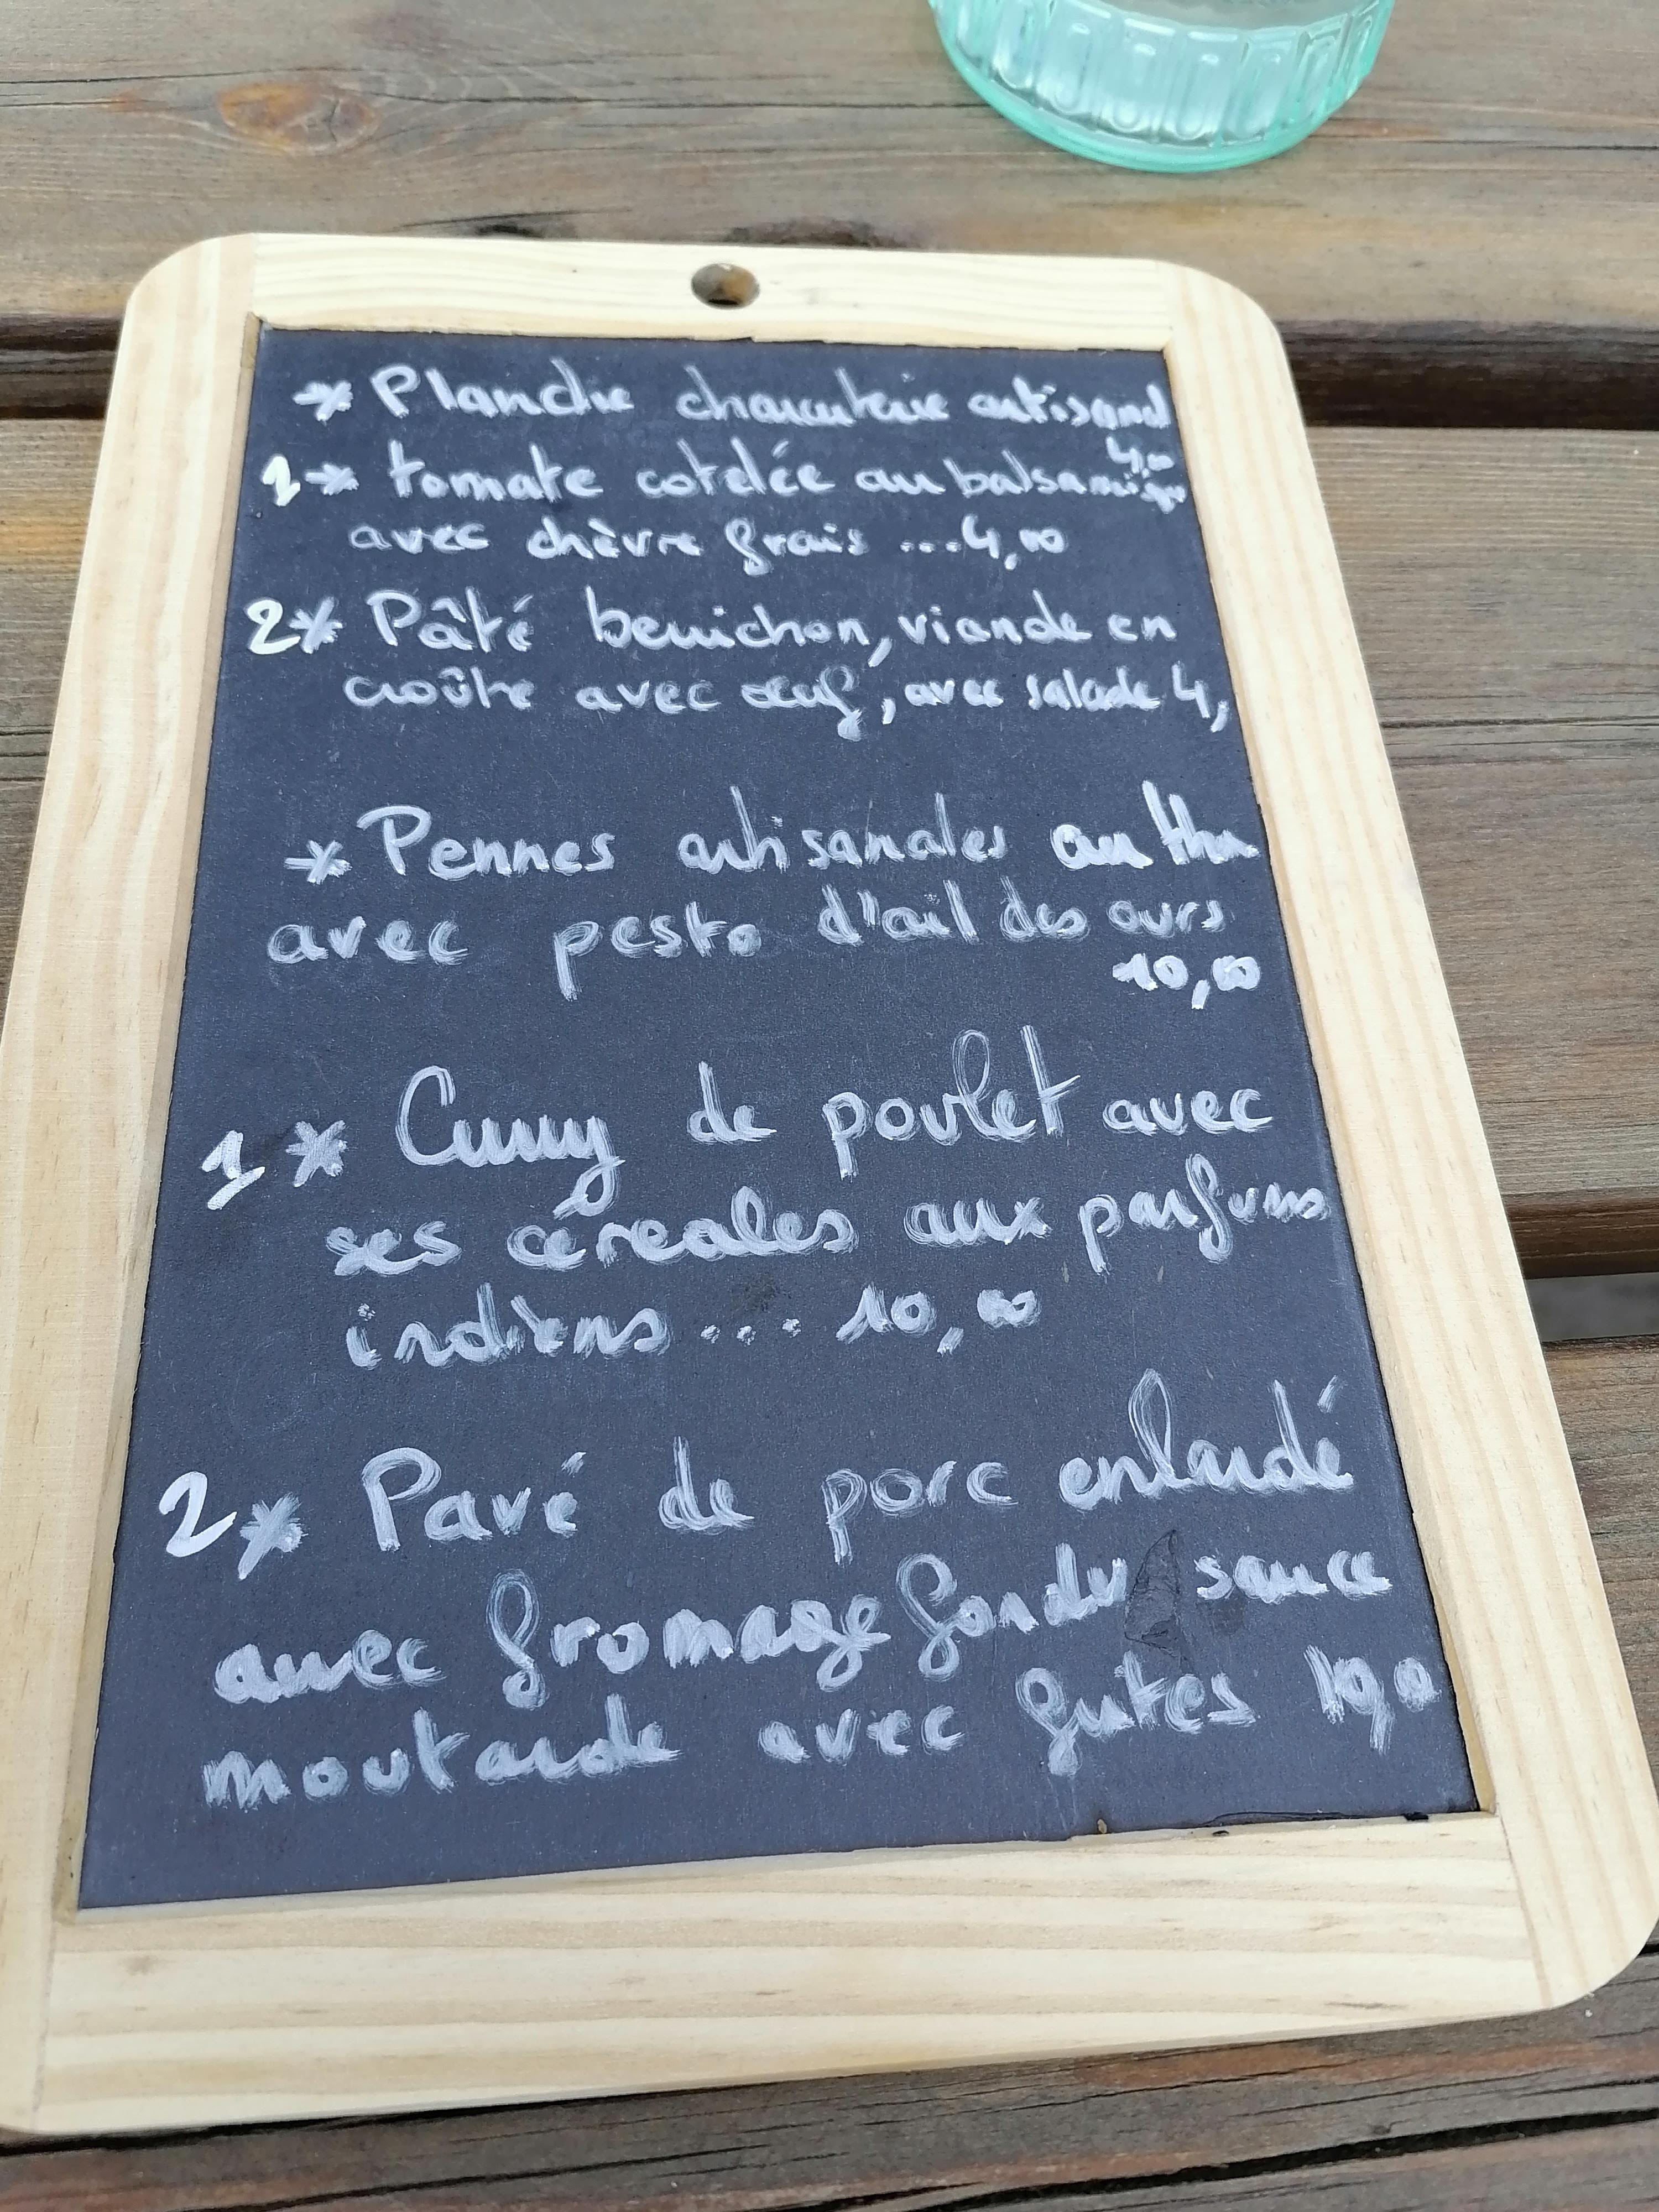 * Planche charcuterie artisanal
4,00
1 * tomate cotelée au balsamique
avec chèvre frais ...4,00
2* Pâté berrichon, viande en
croûte avec œuf, avec salade 4,
* Pennes artisanales au thon
avec pesto d'ail des ours
10,00
1 * Curry de poulet avec
ses céréales aux parfums
indiens ... 10,00
2 * Pavé de porc enlardé
avec fromage fondu sauce
moutarde avec frites 10,0